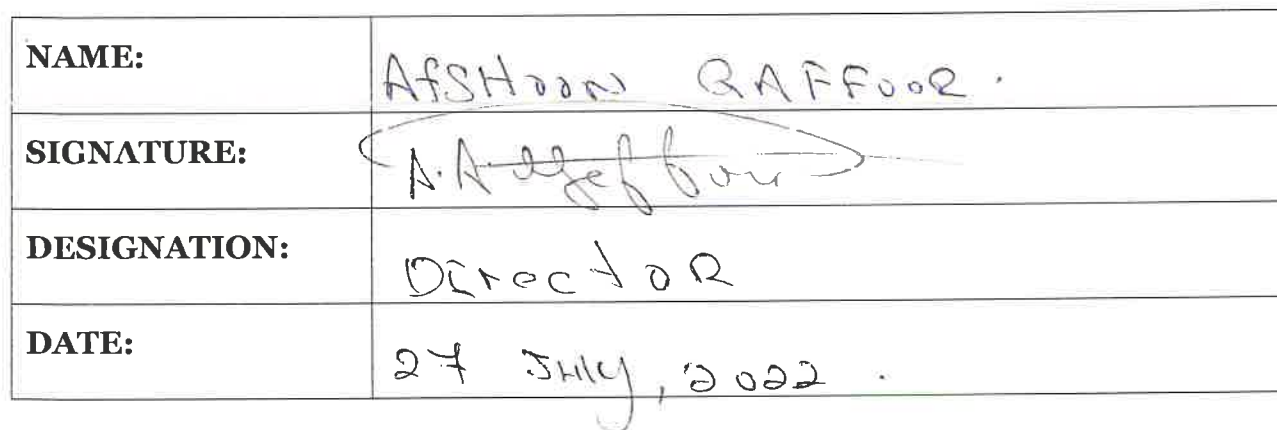 NAME: AfSHOON GAFFOOR.
SIGNATURE: A.A.
DESIGNATION: DIrectoR
DATE: 27 July, 2022.